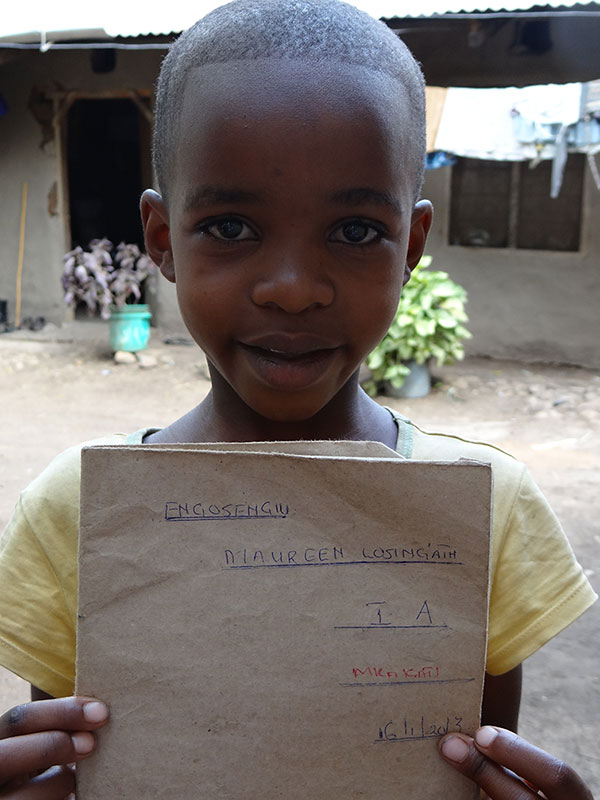 ENGOSENGIU
MAUREEN LOSING'ATH
I A
16/1/2013